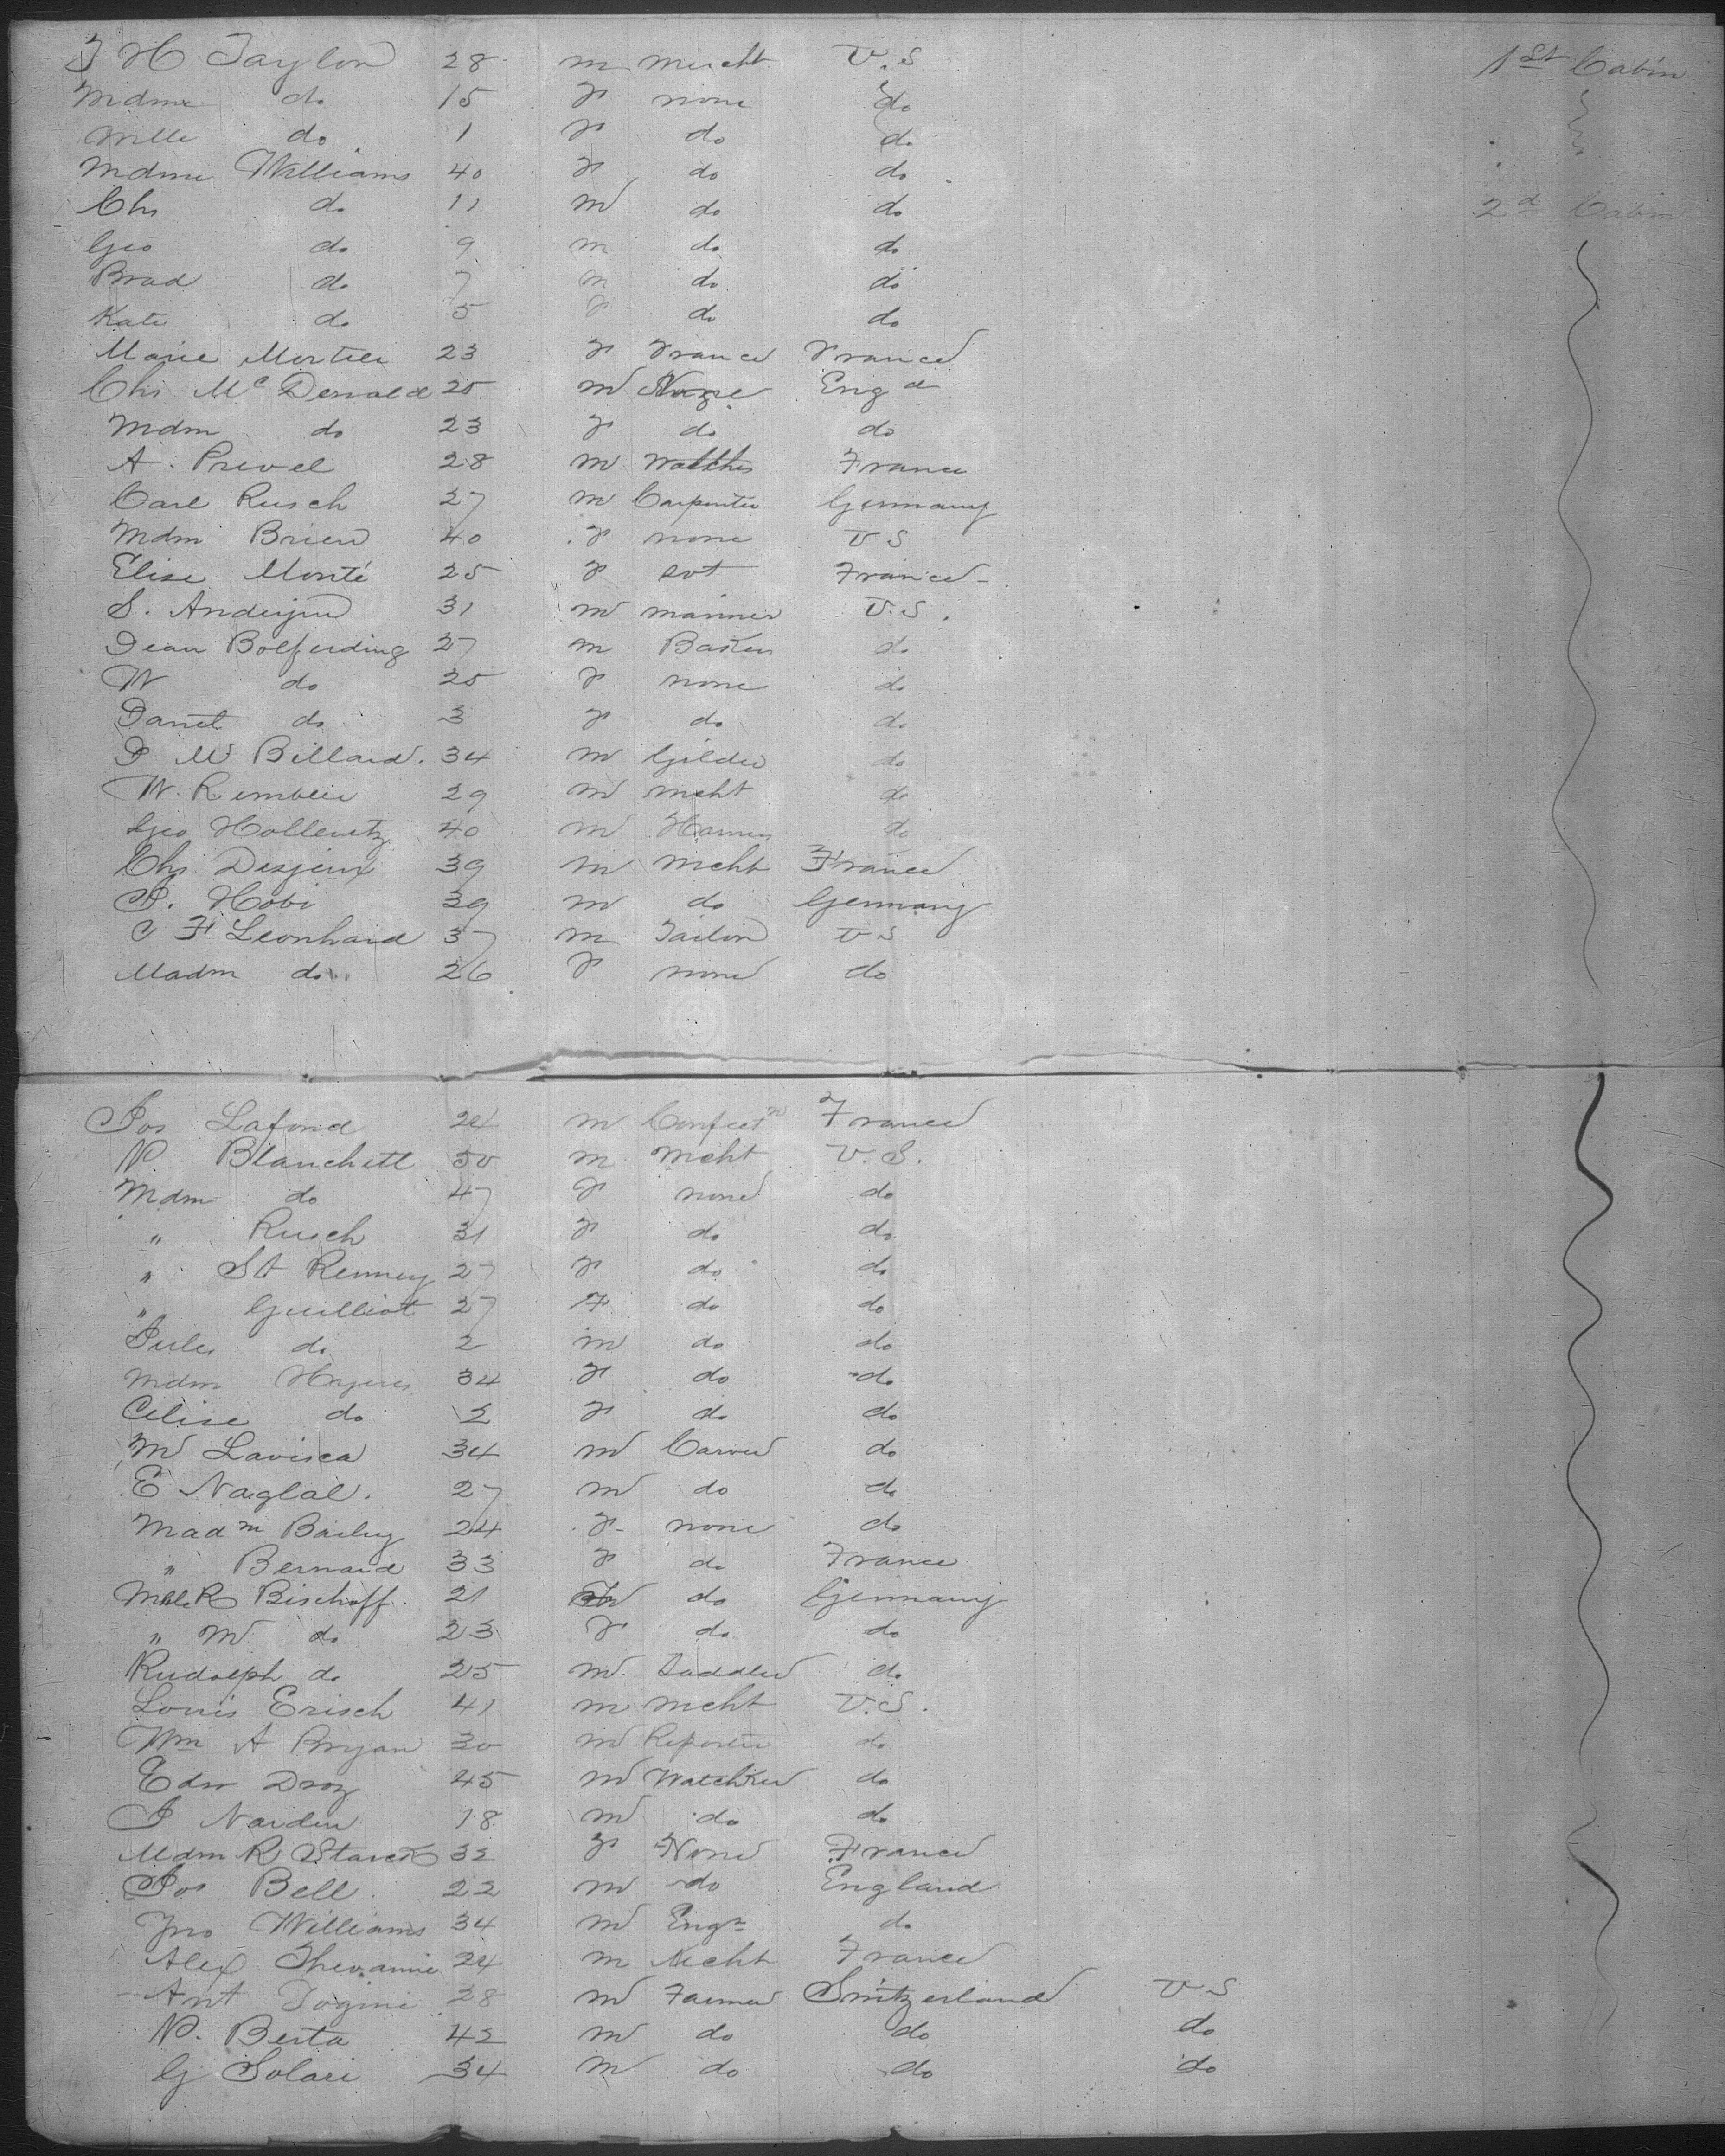 J H Taylor 28 m mercht U.S 1st Cabin
Mdme do 15 F none do
Mlle do 1 F do do
Mdme Williams 40 F do do
Chs do 11 m do do 2d Cabin
Geo do 9 m do do
Brad do 7 m do do
Kate do 5 F do do
Marie Mortier 23 F France France
Chs McDonald 25 m None Engd
Mdm do 23 F do do
A. Prevel 28 m France
Carl Rusch 27 m Carpenter Germany
Mdm Brien 40 F none U S
Elise Monté 25 F svt France
S. Andersen 31 m mariner U.S.
Jean Bolferding 27 m Baker do
W do 25 F none do
do 3 F do do
J M Billard. 34 m Gilder do
W. Rembler 29 m mcht do
Geo Hollewitz 40 m do
Chs Desjeux 39 m mcht France
P. Hobi 39 m do Germany
C F Leonhard 37 m Tailor U S
Madm do 26 F none do
Jos Lafond 24 m Confectr France
N Blanchett 50 m mcht U.S.
Mdm do 47 F none do
" Rusch 31 F do do
" St Remmy 27 F do do
" Guilliot 27 F do do
Jules do 2 m do do
Mdm 34 F do do
Celise do 2 F do do
M Lavisca 34 m Carver do
E Naglal. 27 m do do
Madm Bailey 24 F none do
" Bernard 33 F do France
Mlle R Bischoff 21 do Germany
" M do 23 F do do
Rudolph do 25 m Saddler do
Louis Erisch 41 m mcht U.S.
Wm A Bryan 30 m Reporter do
Edw Droz 45 m Watchker do
J Nardin 18 m do do
Mdm R Starck 32 F None France
Jos Bell. 22 m do England
Jno Williams 34 m Engr do
Alex Thevannie 24 m Mecht France
Ant Togini 28 m Farmer Switzerland U S
N. Berta 42 m do do do
G Solari 34 m do do do